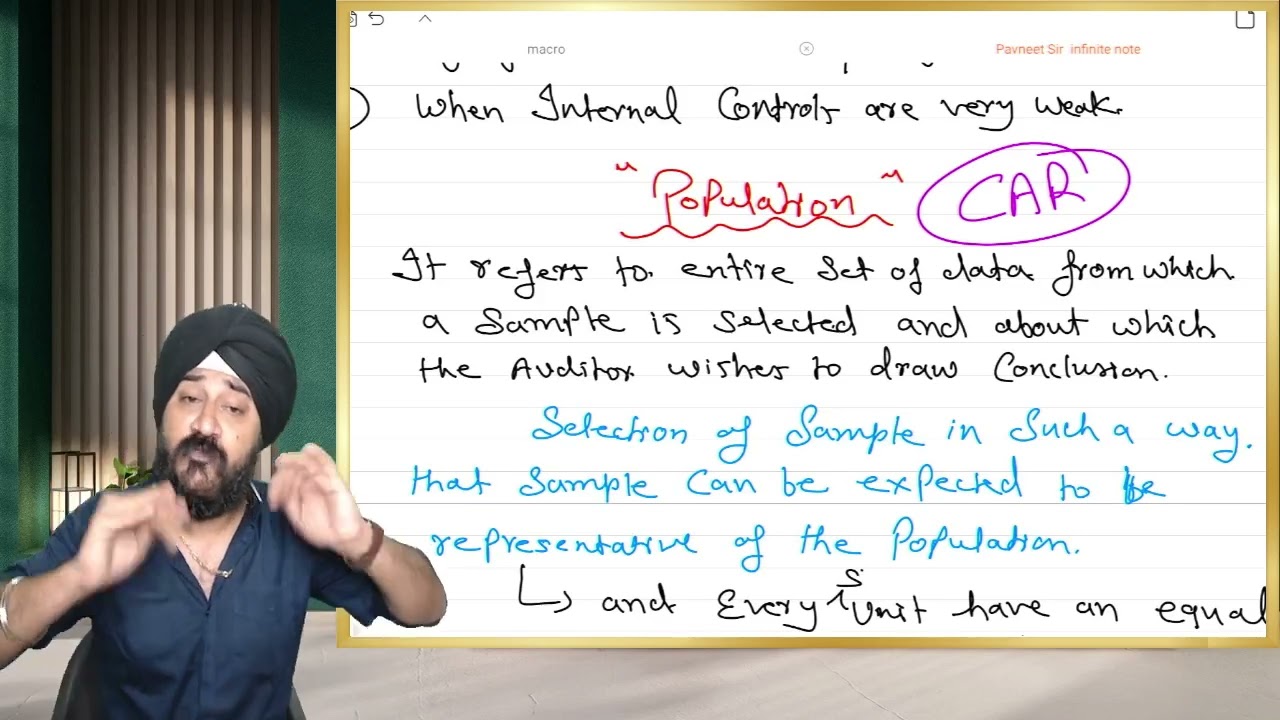 macro
Pavneet Sir infinite note
) When Internal Controls are very weak.
"Population" CAR
It refers to entire set of data from which
a sample is selected and about which
the Auditor wishes to draw Conclusion.
Selection of Sample in Such a way.
that Sample Can be expected to be
representative of the Population.
↳ and Every S Unit have an equal